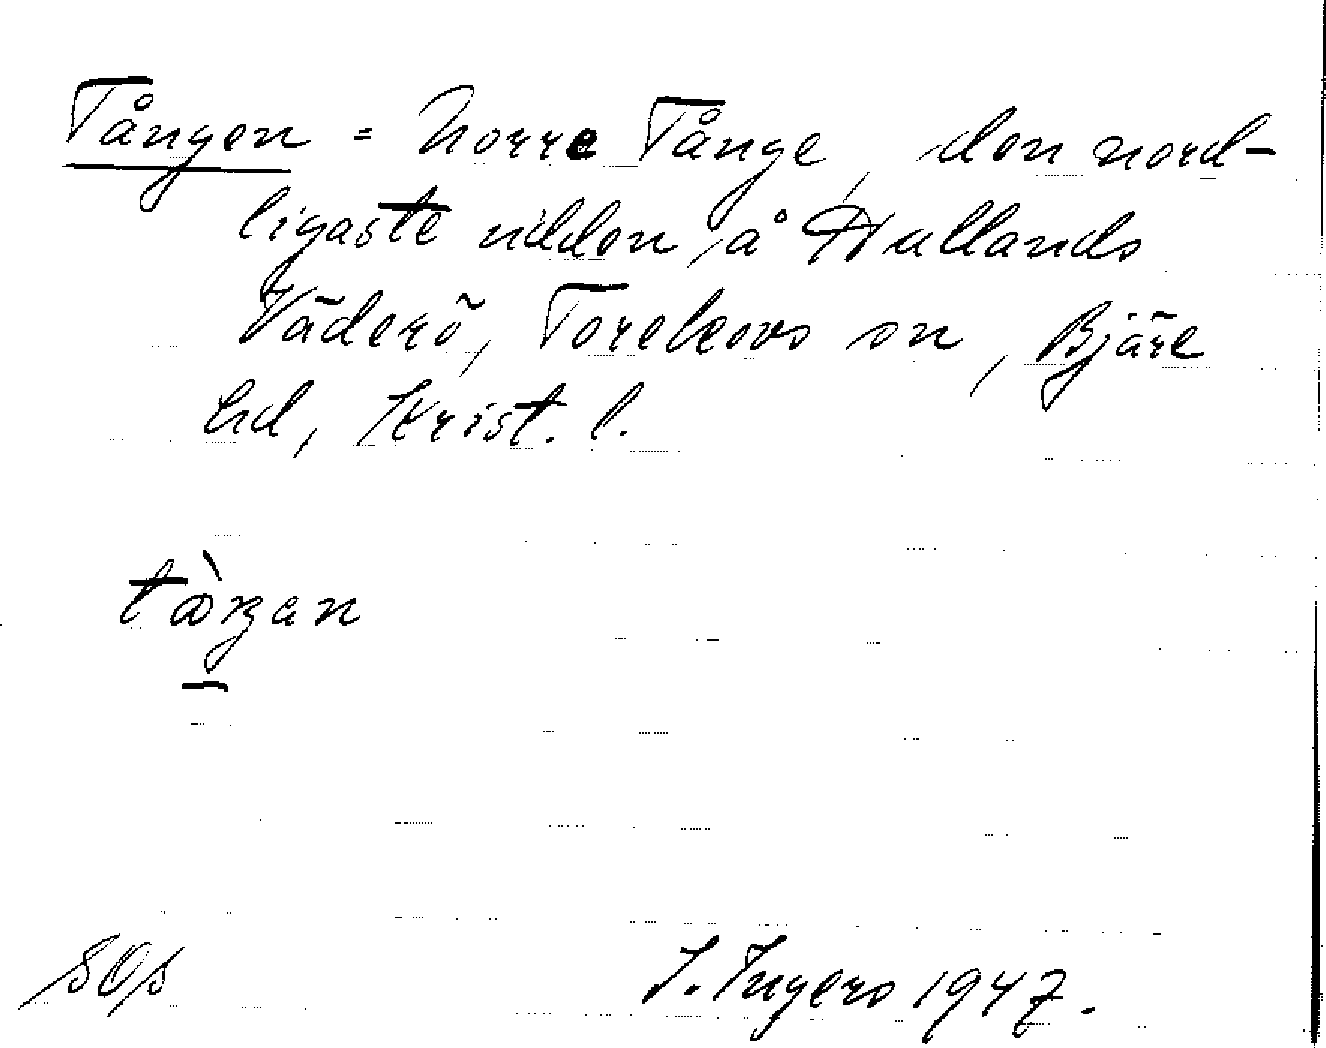 Tången = Norre Tånge, den nord-
ligaste udden å Hallands
Väderö, Torekovs sn, Bjäre
hd, Krist. l.
I. Ingers 1947.